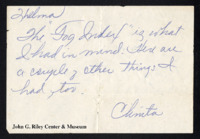 Thelma
The "Fog Index" is what
I had in mind. Here are
a couple of other things I
had, too.
Christa
John G. Riley Center & Museum